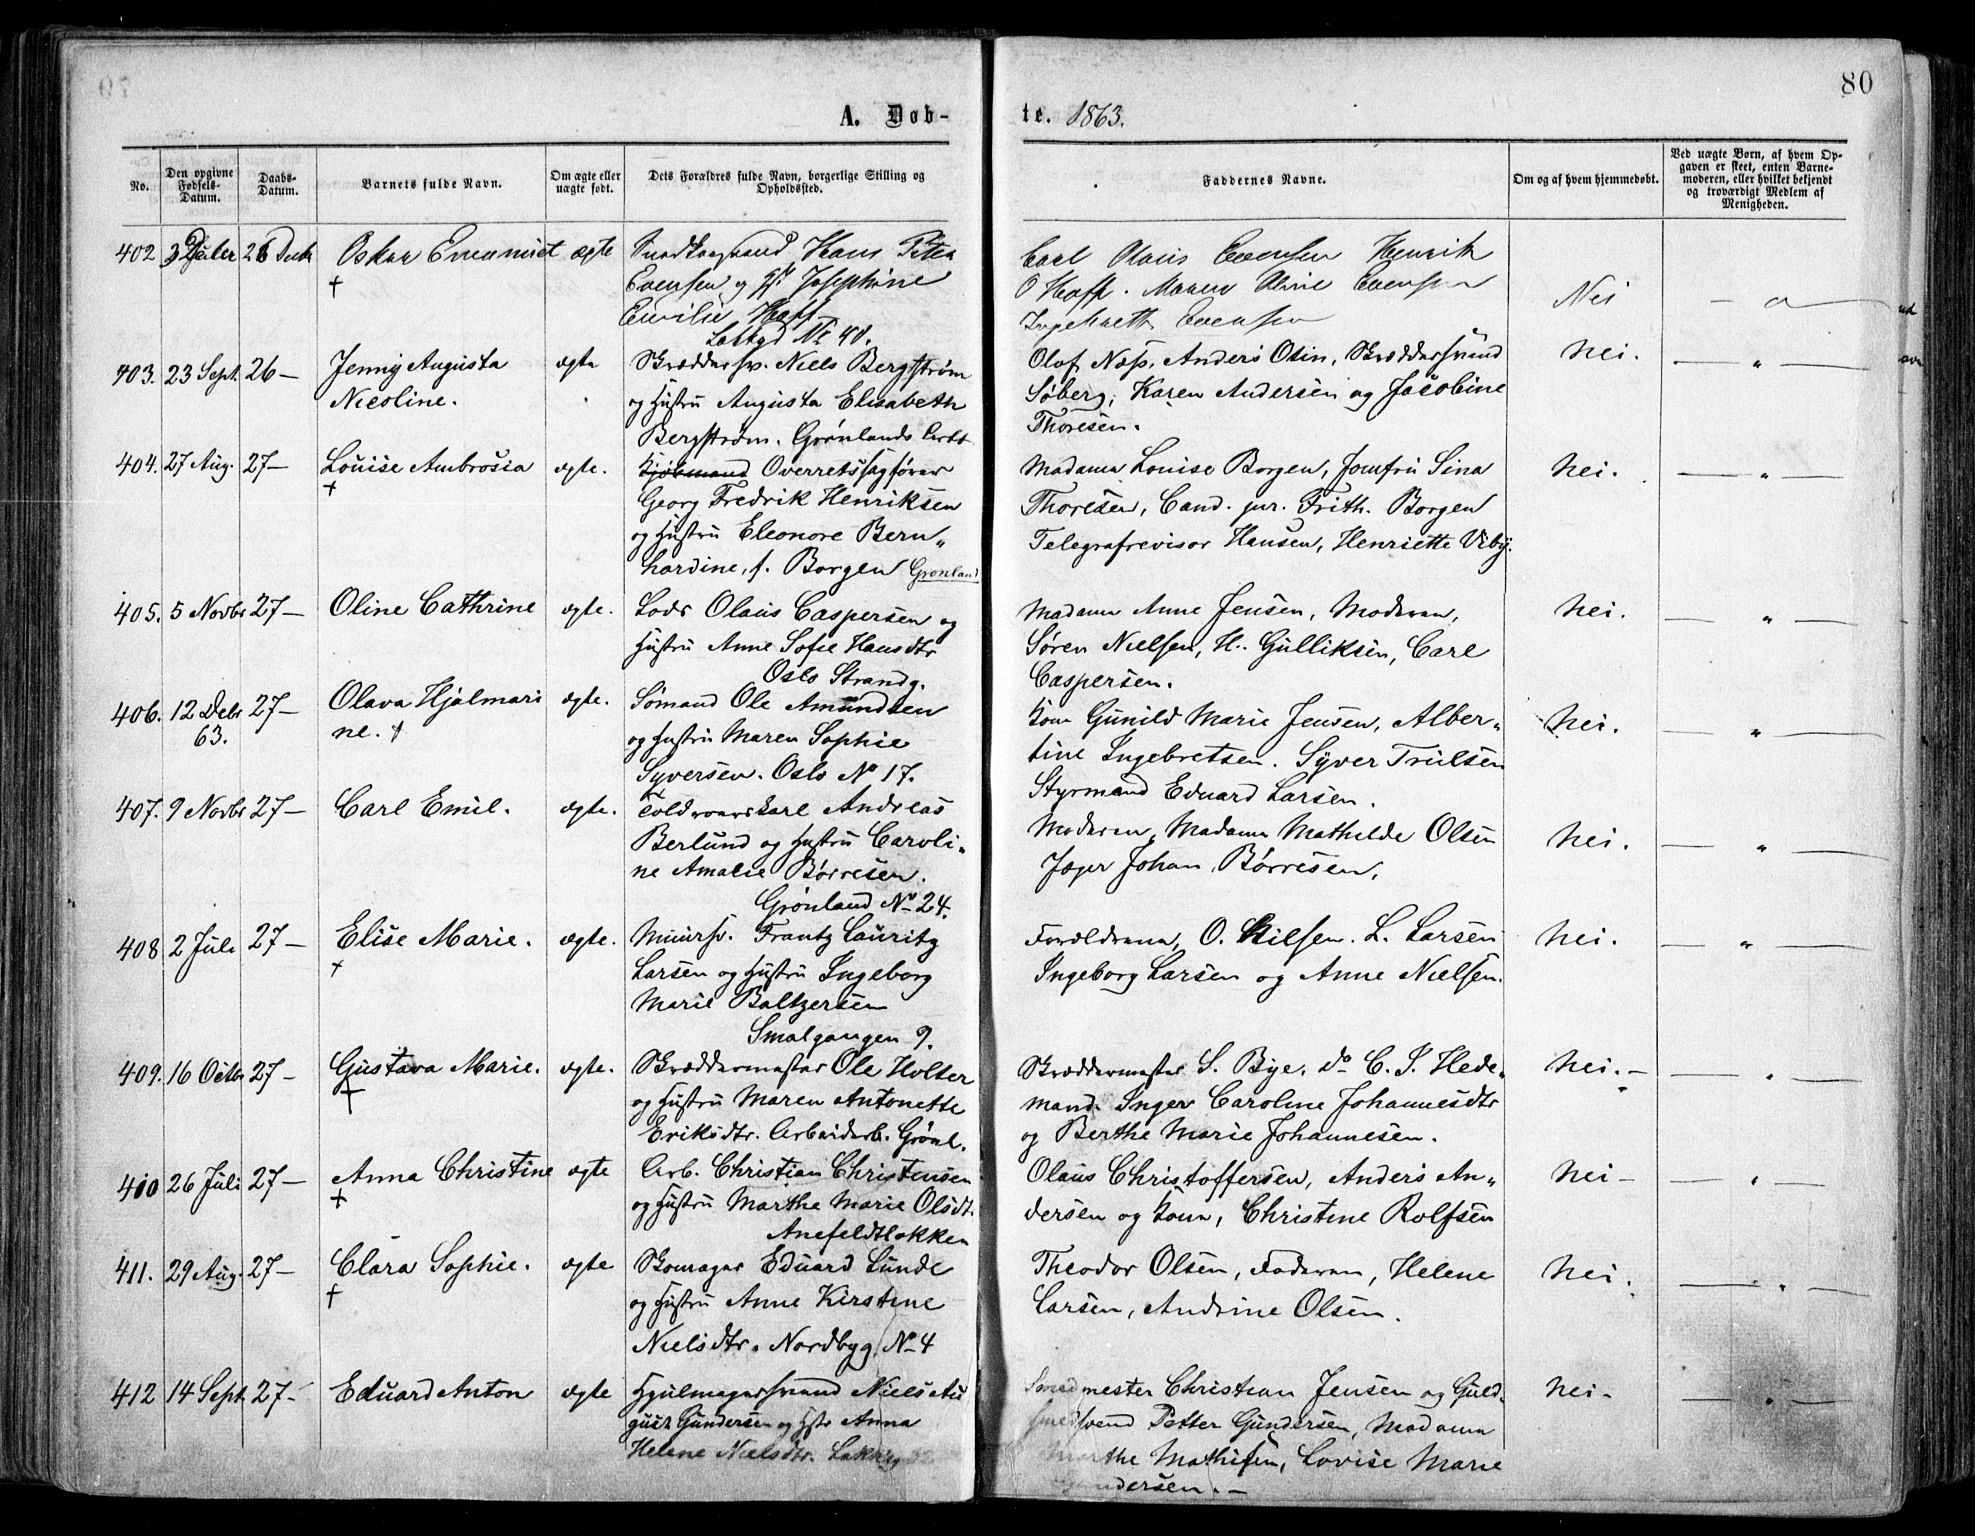 80
A. Døb-
te. 1863.
No.
Den opgivne Fødsels-Datum.
Daabs-Datum.
Barnets fulde Navn.
Om ægte eller uægte født.
Dets Forældres fulde Navn, borgerlige Stilling og Opholdssted.
Faddernes Navne.
Om og af hvem hjemmedøbt.
Ved uægte Børn, af hvem Op-
gaven er skeet, enten Barne-
moderen, eller hvilket bekjendt
og troværdigt Medlem af
Menigheden.
402 ægte Hans Peter
Oskar
†
Evensen og Josephine
Emilie Hoff
No 40.
Carl Olaus Evensen Henrik
O Hoff. Maren Oline Evensen
Evensen
Nei
403. 23 Sept. 26 — Jenny Augusta ægte Skræddersv. Niels Bergstrøm
Nicoline. og Hustru Augusta Elisabeth
Bergstrøm. Grønlands
Olaf Næs, Anders Osin, Skræddersvend
Søberg, Karen Andersen og Jacobine
Thoresen.
Nei. — " —
404. 27 Aug. 27 — Louise Ambrosia ægte. Kjøbmand Overretssagfører
† Georg Fredrik Henriksen
og Hustru Eleonore Bern„
hardine, f. Borgen Grønland
Madame Louise Borgen, Jomfru Sina
Thoresen, Cand. jur. Frith. Borgen
Telegrafrevisor Hansen, Henriette Viby.
Nei. — " —
405. 5 Novbr 27 — Oline Cathrine ægte. Lods Olaus Caspersen og
Hustru Anne Sofie Hansdtr
Oslo Strandg.
Madame Anne Jensen, Moderen,
Søren Nielsen, H. Gulliksen, Carl
Caspersen.
Nei. — " —
406. 12 Debr 27 — Olava Hjalmari ægte. Sømand Ole Amundsen
63. ne. † og Hustru Maren Sophie
Syversen. Oslo No 17.
Kone Gunild Marie Jensen, Alber„
tine Ingebretsen. Syver Trulsen
Styrmand Eduard Larsen.
Nei. — " —
407. 9 Novbr 27 — Carl Emil. ægte. Andreas
Berlund og Hustru Caroli„
ne Amalie Børresen.
Grønland No 24.
Moderen, Madame Mathilde Olsen
Jæger Johan Børresen.
Nei. — " —
408 2 Juli 27 — Elise Marie. ægte. Muursv. Frantz Lauritz
† Larsen og Hustru Ingeborg
Marie Baltzersen
Smalgangen 9.
Forældrene, O. Nilsen. L. Larsen
Ingeborg Larsen og Anne Nielsen.
Nei. — " —
409. 16 Octbr 27 — Gustava Marie. ægte. Skræddermester Ole Holter
† og Hustru Maren Antonette
Eriksdtr. Arbeiderb. Grønl.
Skræddermester S. Bye. Do C. J. Hede„
mand. Inger Caroline Johannesdtr
og Berthe Marie Johannesen.
Nei. — " —
410 26 Juli 27 — Anna Christine ægte Arb. Christian Christensen
† og Hustru Marthe Marie Olsdt.
Anefeldtløkken
Olaus Christoffersen, Anders An„
dersen og Kone, Christine Rolfsen
Nei — " —
411. 29 Aug. 27 — Clara Sophie. ægte Skomager Eduard Lunde
† og Hustru Anne Kirstine
Nielsdtr. Nordbyg. No 4
Theodor Olsen, Faderen, Helene
Larsen, Andrine Olsen.
Nei. — " —
412 14 Sept. 27 — Eduard Anton ægte Hjulmagersvend Niels Au
gust Gundersen og Hstr Anna
Helene Nielsdtr. Lakkeg
Smedmester Christian Jensen og Guld-
smedsvend Petter Gundersen, Madame
Marthe Mathisen, Lovise Marie
Gundersen. —
Nei — " —